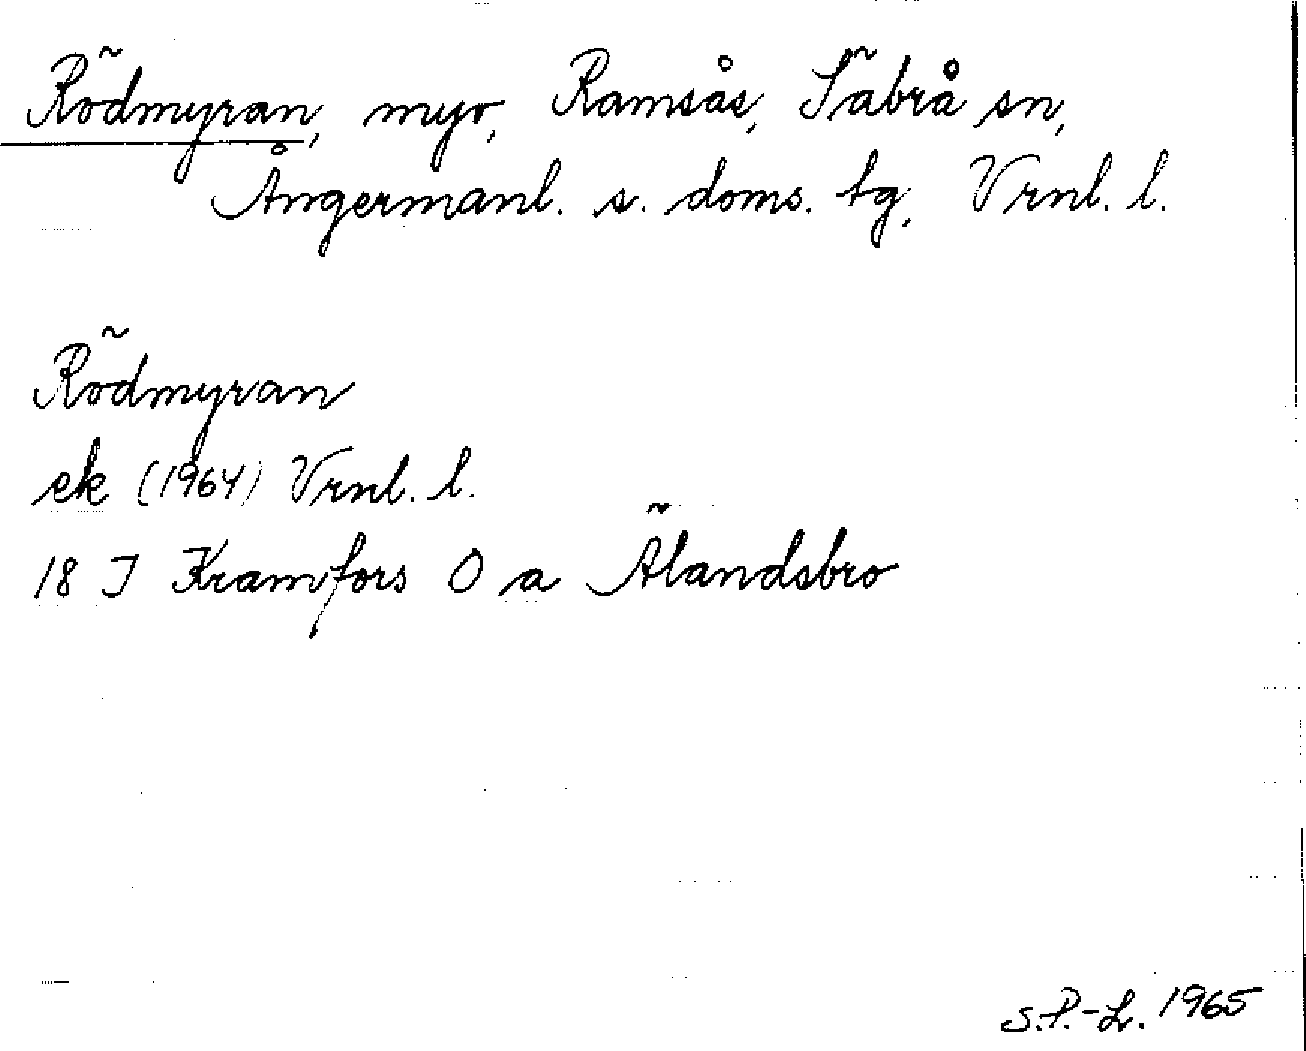 Rödmyran, myr, Ramsås, Säbrå sn,
Ångermanl. s. doms. tg, Vrnl. l.
Rödmyran
ek (1964) Vrnl. l.
18 I Kramfors O a Älandsbro
S.P.-L. 1965